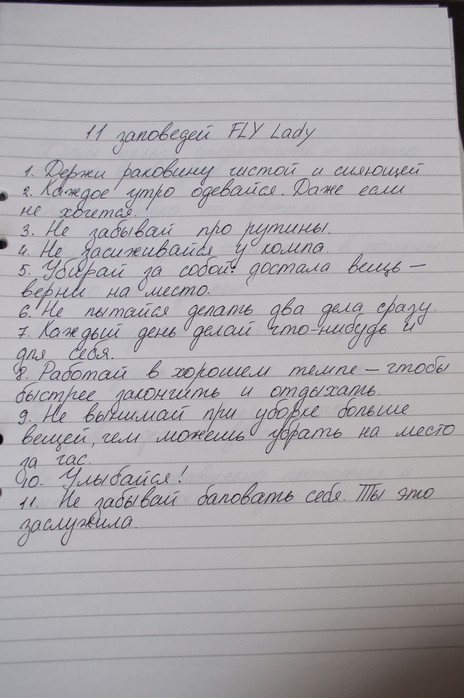 11 заповедей FLY Lady
1. Держи раковину чистой и сияющей
2. Каждое утро одевайся. Даже если
не хочется.
3. Не забывай про рутины.
4. Не засиживайся у компа.
5. Убирай за собой: достала вещь –
верни на место.
6. Не пытайся делать два дела сразу.
7. Каждый день делай что-нибудь и
для себя.
8. Работай в хорошем темпе – чтобы
быстрее закончить и отдыхать.
9. Не вынимай при уборке больше
вещей, чем можешь убрать на место
за час.
10. Улыбайся!
11. Не забывай баловать себя. Ты это
заслужила.